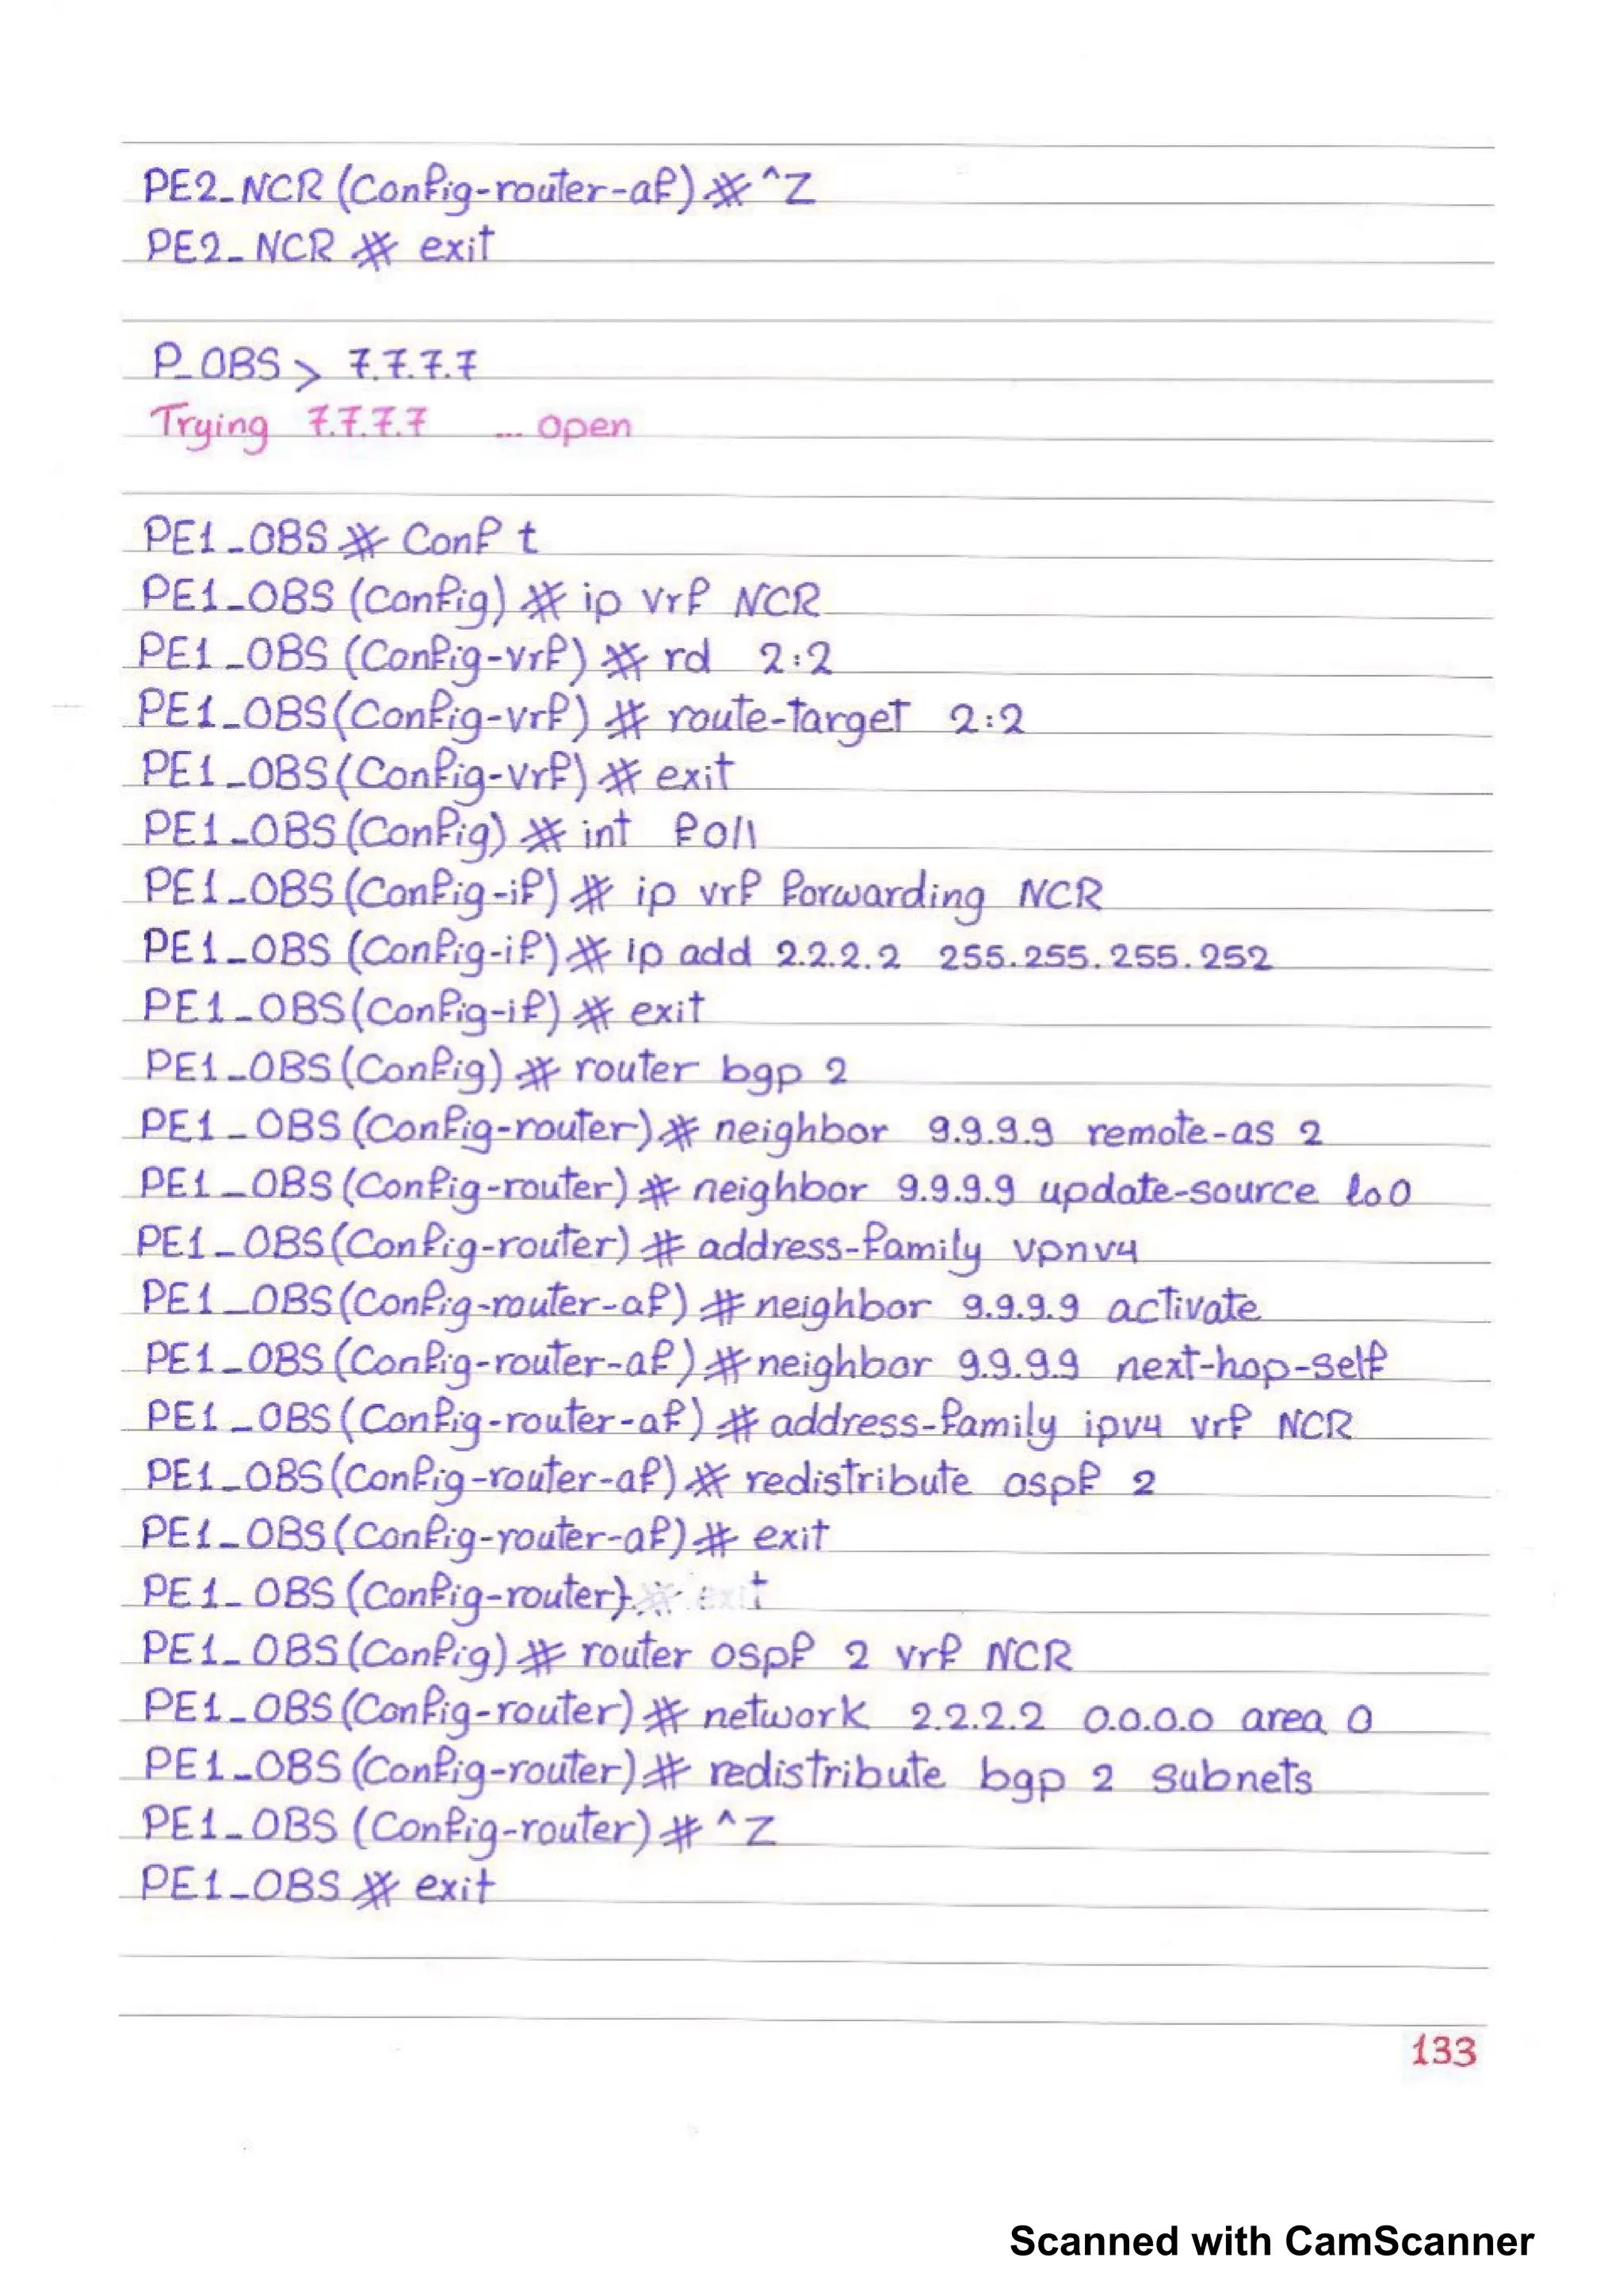 PE2_NCR (Config-router-af) # ^Z
PE2_NCR # exit
P_OBS > 7.7.7.7
Trying 7.7.7.7 ... open
PE1_OBS # Conf t
PE1_OBS (Config) # ip vrf NCR
PE1_OBS (Config-vrf) # rd 2:2
PE1_OBS (Config-vrf) # route-target 2:2
PE1_OBS (Config-vrf) # exit
PE1_OBS (Config) # int f0/1
PE1_OBS (Config-if) # ip vrf forwarding NCR
PE1_OBS (Config-if) # ip add 2.2.2.2 255.255.255.252
PE1_OBS (Config-if) # exit
PE1_OBS (Config) # router bgp 2
PE1_OBS (Config-router) # neighbor 9.9.9.9 remote-as 2
PE1_OBS (Config-router) # neighbor 9.9.9.9 update-source lo0
PE1_OBS (Config-router) # address-family vpnv4
PE1_OBS (Config-router-af) # neighbor 9.9.9.9 activate
PE1_OBS (Config-router-af) # neighbor 9.9.9.9 next-hop-self
PE1_OBS (Config-router-af) # address-family ipv4 vrf NCR
PE1_OBS (Config-router-af) # redistribute ospf 2
PE1_OBS (Config-router-af) # exit
PE1_OBS (Config-router) # exit
PE1_OBS (Config) # router ospf 2 vrf NCR
PE1_OBS (Config-router) # network 2.2.2.2 0.0.0.0 area 0
PE1_OBS (Config-router) # redistribute bgp 2 subnets
PE1_OBS (Config-router) # ^Z
PE1_OBS # exit
133
Scanned with CamScanner